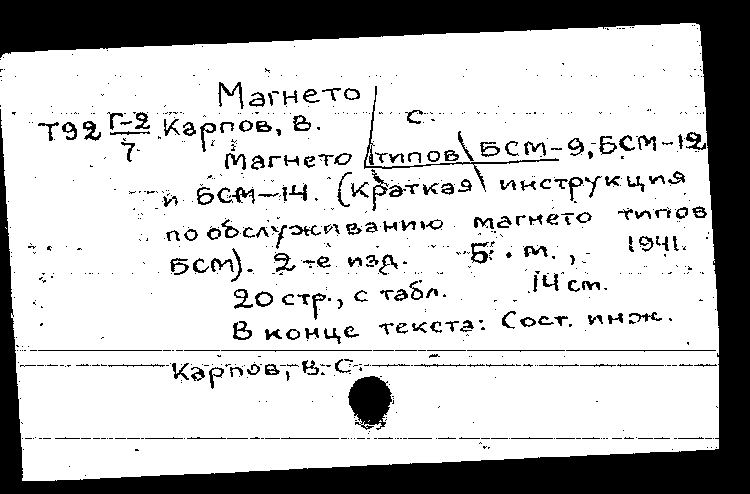 Магнето
Т92 Г-2/7 Карпов, В. С.
Магнето типов БСМ-9, БСМ-12
и БСМ-14. (Краткая инструкция
по обслуживанию магнето типов
БСМ). 2-е изд. Б. м., 1941.
20 стр., с табл. 14 см.
В конце текста: Сост. инж.
Карпов, В. С.